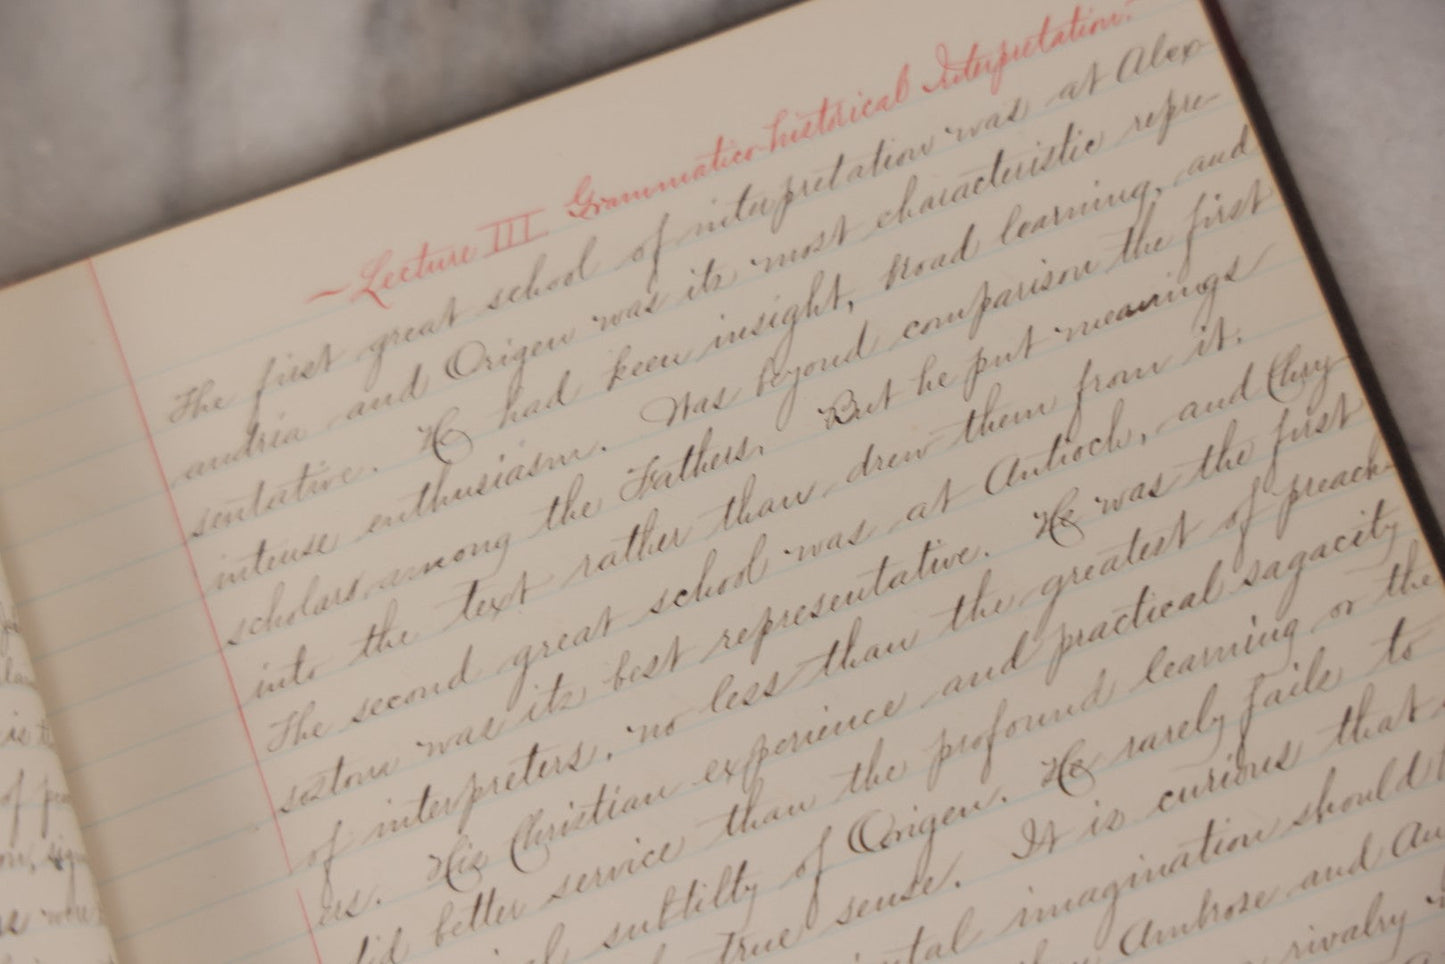 ~Lecture III. Grammatico-historical Interpretation.~
The first great school of interpretation was at Alex-
andria and Origen was its most characteristic repre-
sentative. He had keen insight, broad learning, and
intense enthusiasm. Was beyond comparison the first
scholar among the Fathers. But he put meanings
into the text rather than drew them from it.
The second great school was at Antioch, and Chry-
sostom was its best representative. He was the first
of interpreters, no less than the greatest of preach-
ers. His Christian experience and practical sagacity
did better service than the profound learning or the
subtilty of Origen. He rarely fails to
true sense. It is curious that
imagination should
Ambrose and
rivalry